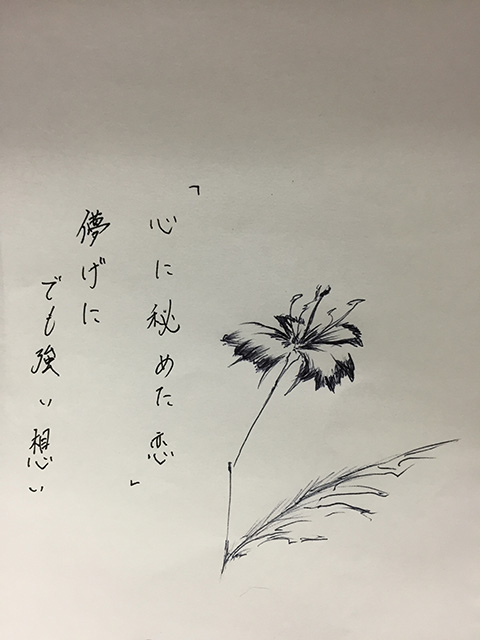 「心に秘めた恋」
儚げに
でも強い想い